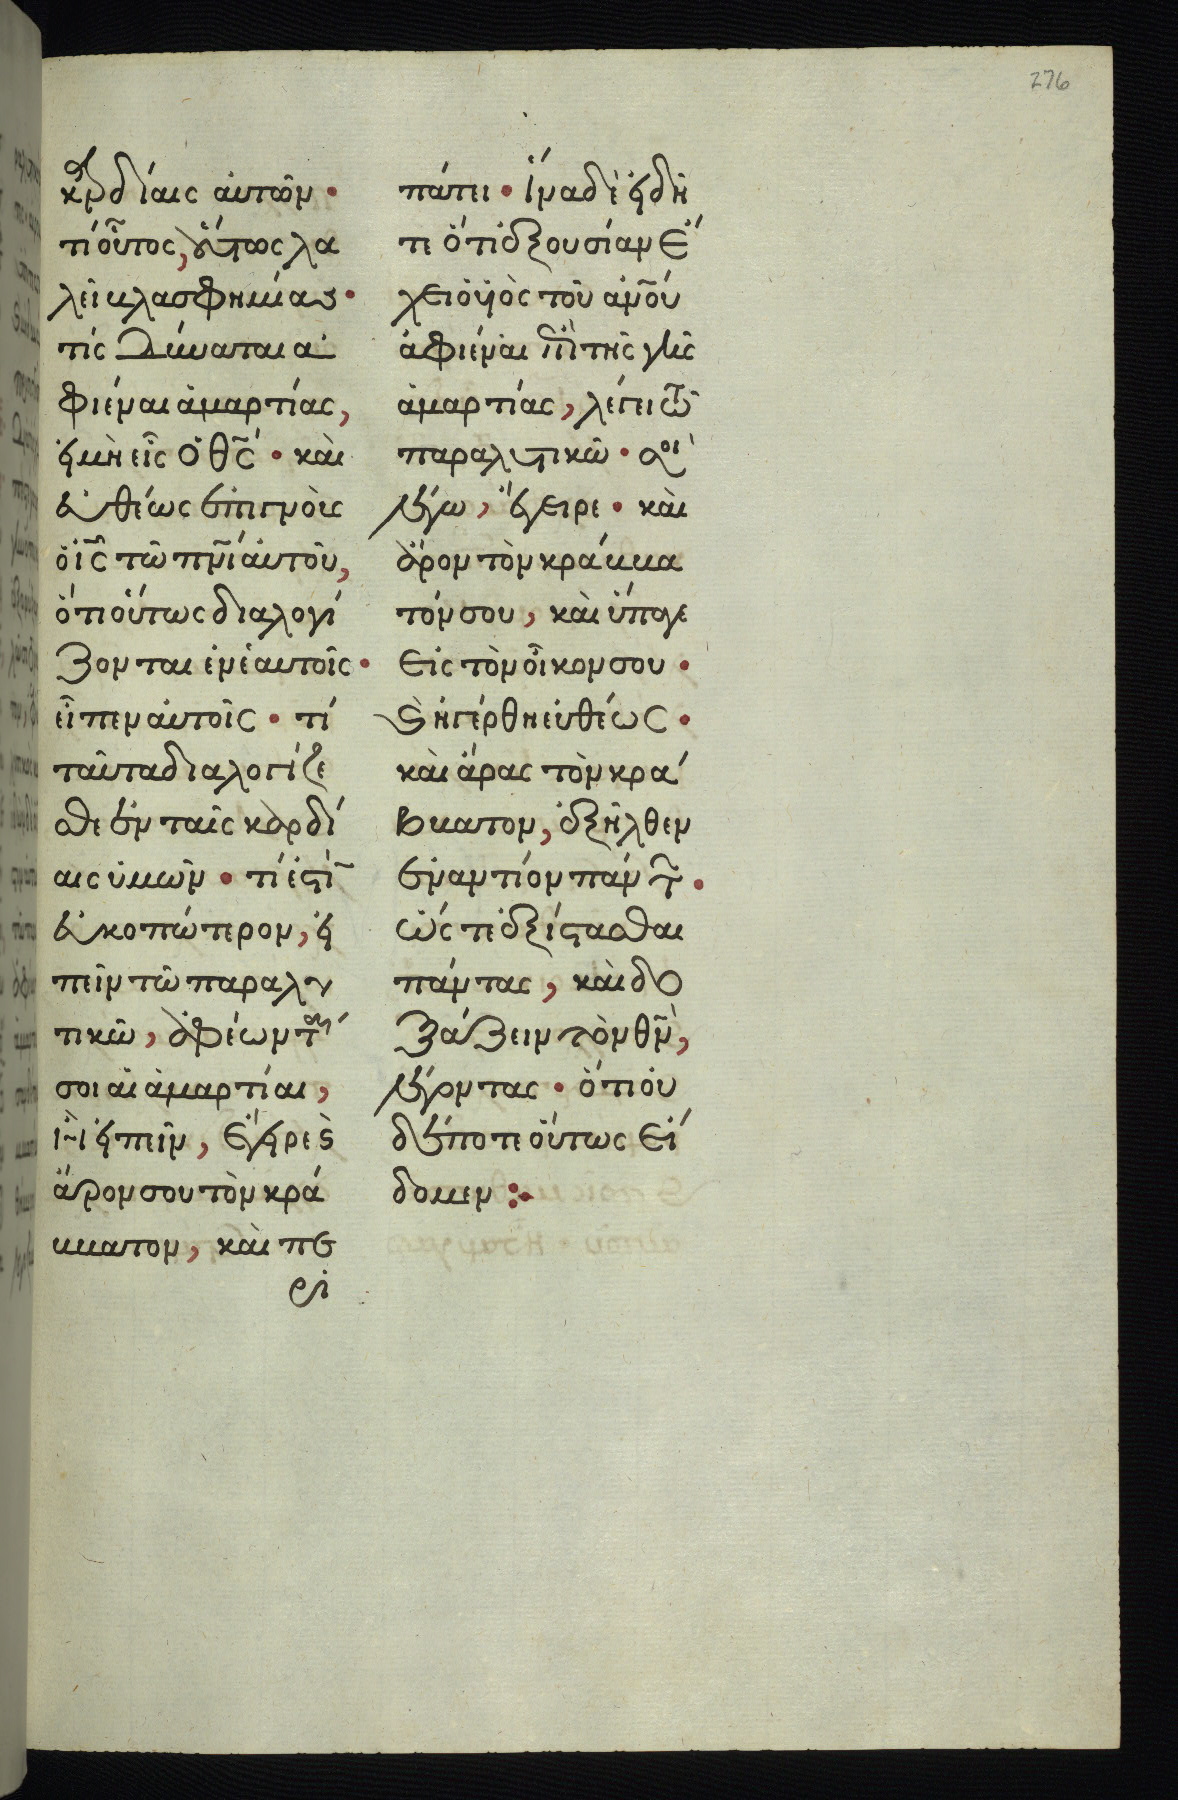 276
καρδίαις αὐτῶν·
τί οὗτος, οὕτως λα
λεῖ βλασφημίας·
τίς δύναται ἀ
φιέναι ἁμαρτίας,
εἰ μὴ εἷς ὁ θς· καὶ
εὐθέως ἐπιγνοὺς
ὁ ις τῶ πνι αὐτοῦ,
ὅτι οὕτως διαλογί
ζονται ἐν ἑαυτοῖς·
εἶπεν αὐτοῖς· τί
ταῦτα διαλογίζε
σθε ἐν ταῖς καρδί
αις ὑμῶν· τί ἐστὶ
εὐκοπώτερον, εἰ
πεῖν τῶ παραλυ
τικῶ, ἀφέωνταί
σοι αἱ ἁμαρτίαι,
ἢ εἰπεῖν, ἔγειρε ϛ
ἆρον σου τὸν κρά
ββατον, καὶ πε
ρι
πάτει· ἵνα δὲ εἰδῆ
τε ὅτι ἐξουσίαν ἔ
χει ὁ υἱὸς τοῦ ανου
ἀφιέναι ἐπὶ τῆς γῆς
ἁμαρτίας, λέγει τῶ
παραλυτικῶ· σοὶ
λέγω, ἔγειρε· καὶ
ἆρον τὸν κράββα
τόν σου, καὶ ὕπαγε
εἰς τὸν οἶκον σου·
ϛ ἠγέρθη εὐθέως·
καὶ ἄρας τὸν κρά
ββατον, ἐξῆλθεν
ἐναντίον πάντων·
ὥς τε ἐξίστασθαι
πάντας, καὶ δο
ξάζειν τὸν θν,
λέγοντας· ὅτι οὐ
δέποτε οὕτως εἴ
δομεν:·